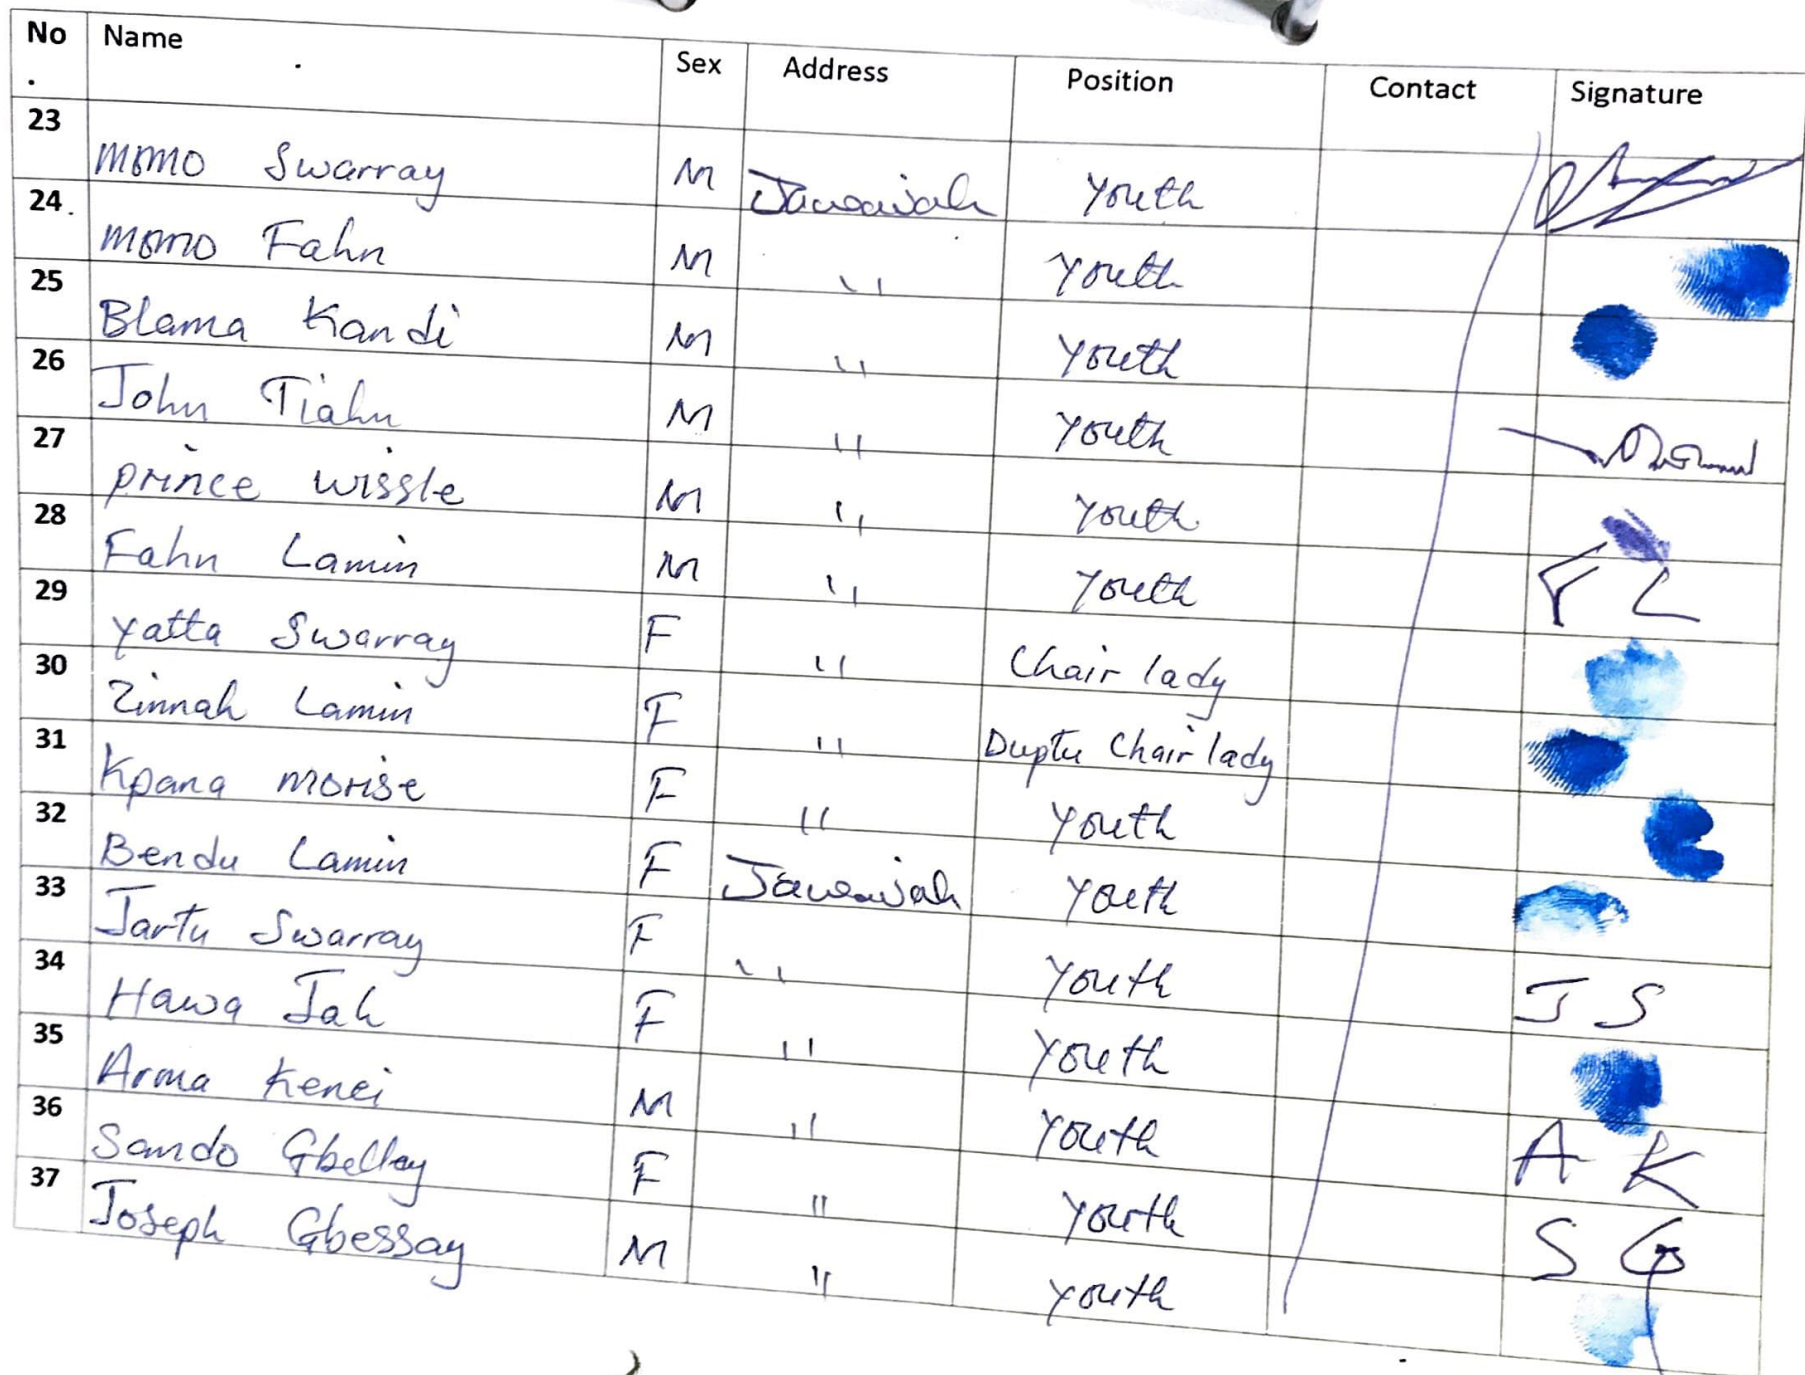 No. Name Sex Address Position Contact Signature
23 Momo Swarray M Jawajah Youth
24 Momo Fahn M " Youth
25 Blama Kandi M " Youth
26 John Tiahn M " Youth
27 Prince Wissle M " Youth
28 Fahn Lamin M " Youth F L
29 Yatta Swarray F " Chair lady
30 Zinnah Lamin F " Duptu Chair lady
31 Kpana Morise F " Youth
32 Bendu Lamin F Jawajah Youth
33 Jartu Swarray F " Youth J S
34 Hawa Jah F " Youth
35 Arma Kenei M " Youth A K
36 Sando Gbelley F " Youth S G
37 Joseph Gbessay M " Youth